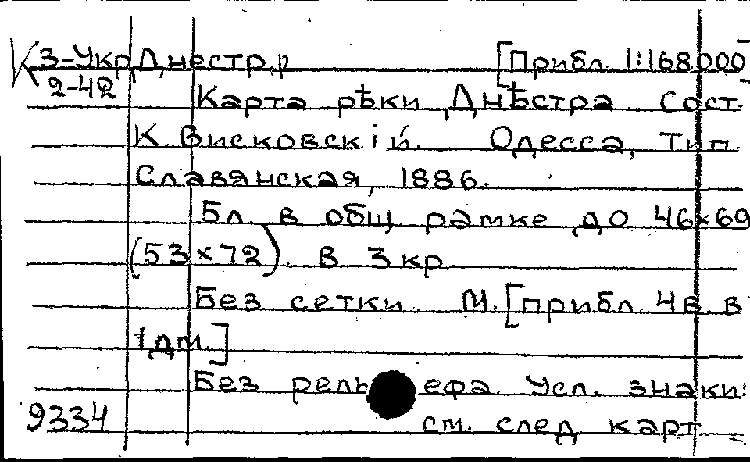 К 3-Укр Днестр, р [Прибл. 1:168000
2-42
Карта рѣки Днѣстра Сост.
К Висковскій. Одесса, Тип.
Славянская, 1886.
Бл. в общ рамке до 46×69
(53×72). В 3 кр
Без сетки. М. [прибл 4в. в
1дм.]
Без рельефа. Усл. знаки:
9334 см. след карт